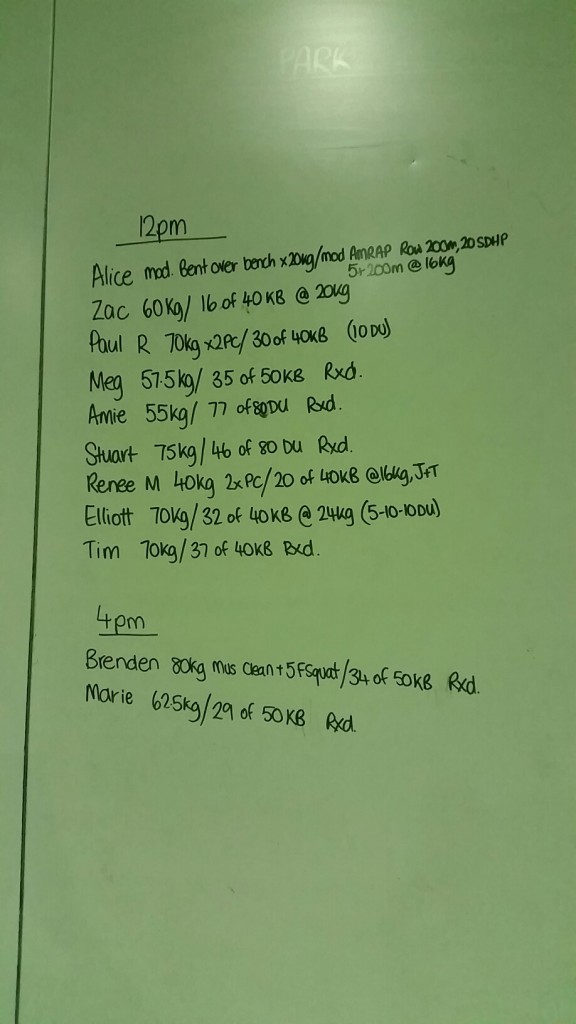 PARK
12pm
Alice mod. Bent over bench x20kg/mod AMRAP Row 200m, 20 SDHP
5r 200m @ 16kg
Zac 60Kg/ 16 of 40 KB @ 20kg
Paul R 70kg x2PC/ 30 of 40KB (10 DU)
Meg 57.5kg/ 35 of 50KB Rxd.
Amie 55kg/ 77 of 80 DU Rxd.
Stuart 75kg/46 of 80 DU Rxd.
Renee M 40kg 2xPC/20 of 40KB @16kg, J+T
Elliott 70kg/32 of 40KB @ 24kg (5-10-10DU)
Tim 70kg/37 of 40KB Rxd.
4pm
Brenden 80kg mus clean+5FSquat/34 of 50KB Rxd.
Marie 62.5kg/29 of 50KB Rxd.